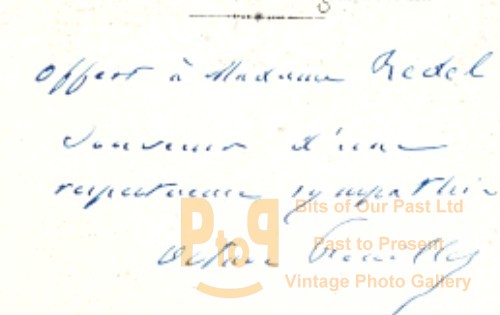 Offert à Madame Redel
Souvenir d'une
respectueuse sympathie
Bits of Our Past Ltd
PtoP
Past to Present
Vintage Photo Gallery